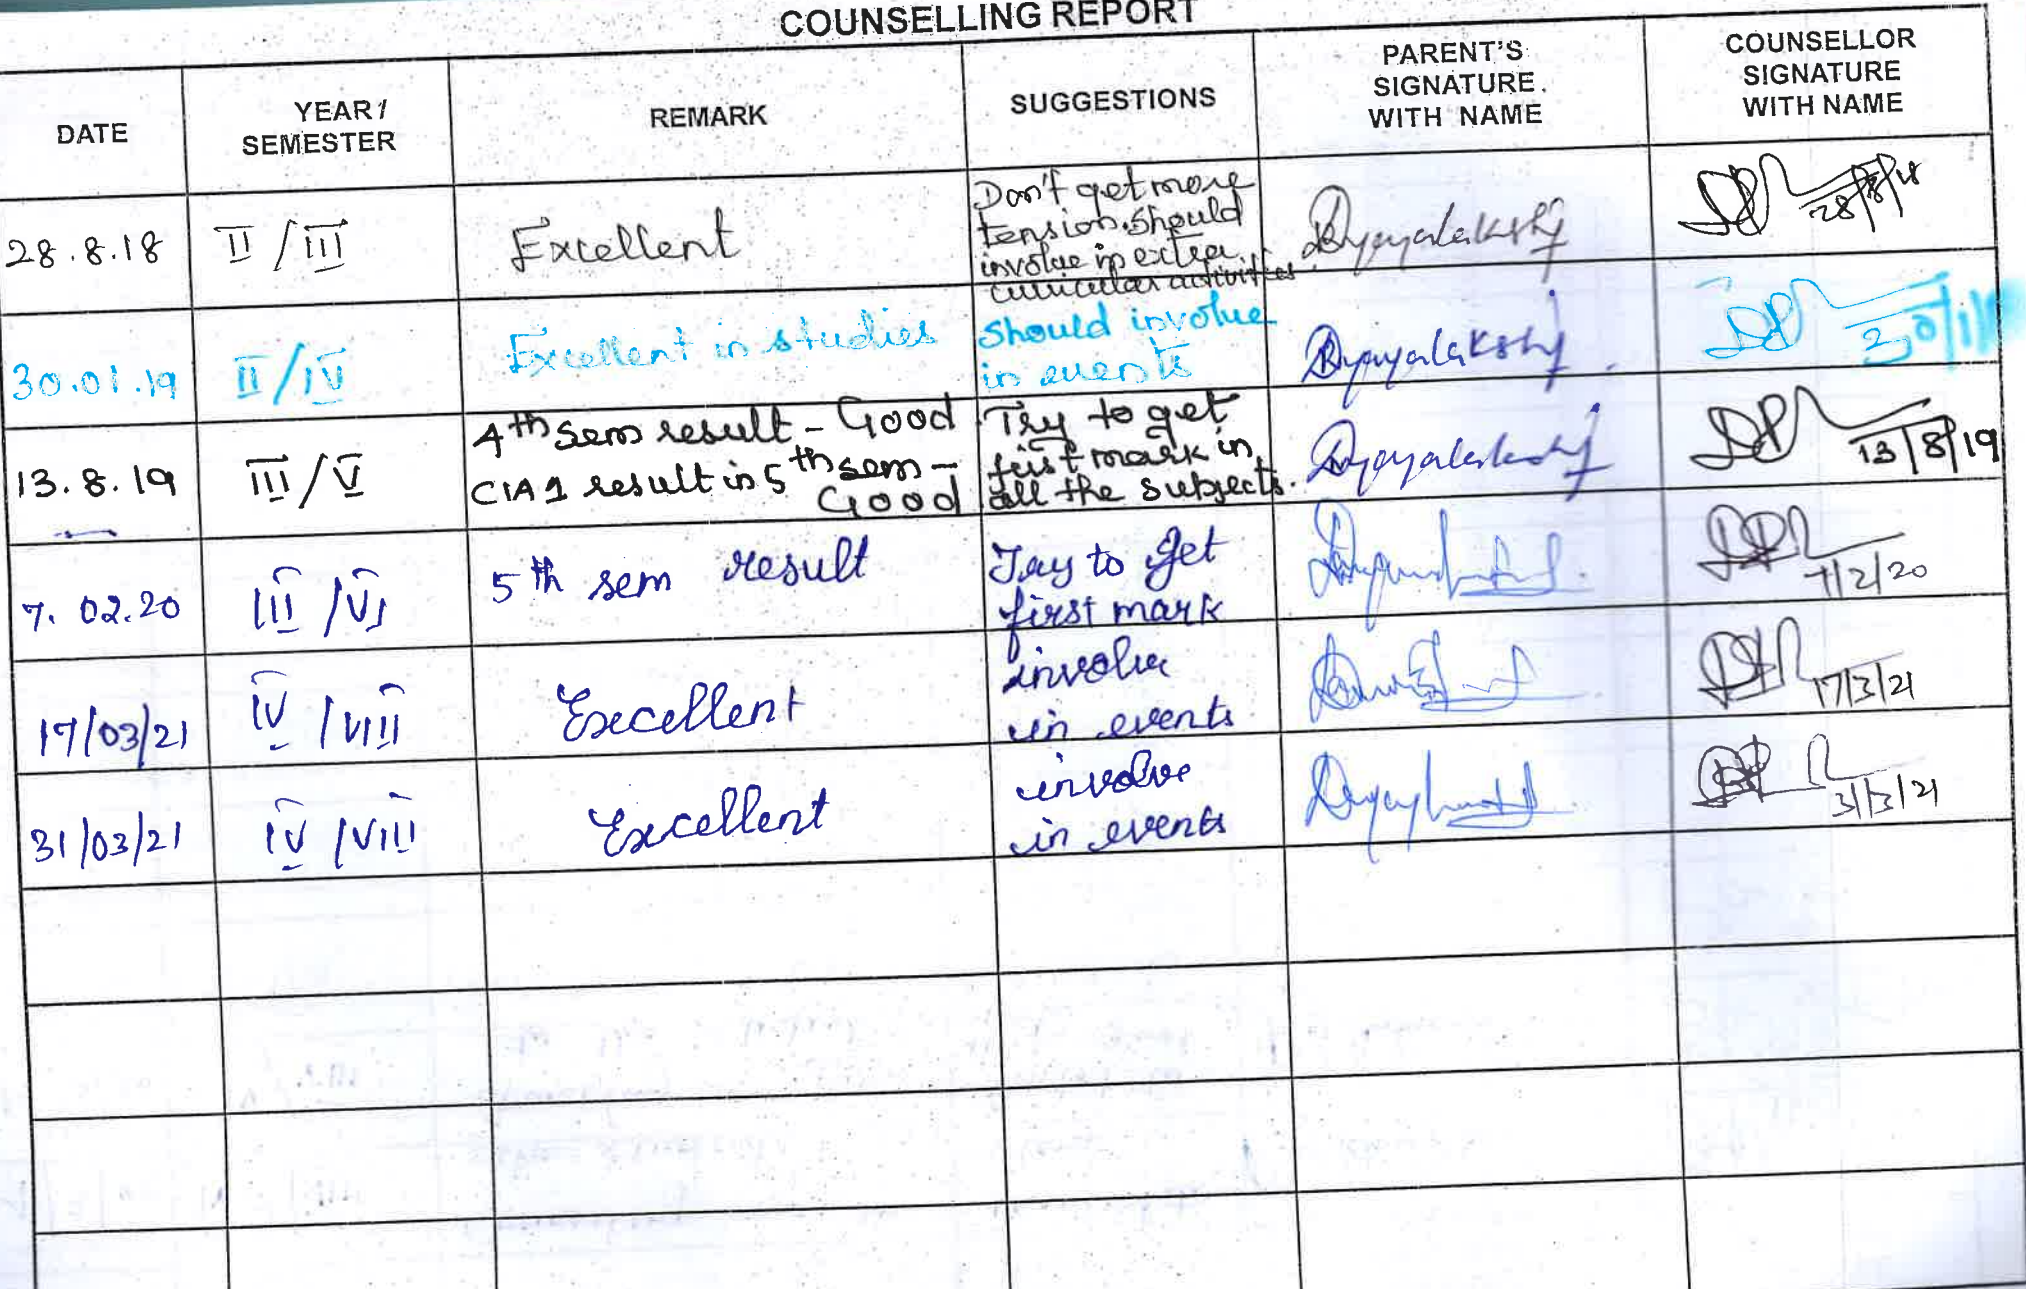 COUNSELLING REPORT
DATE
YEAR /
SEMESTER
REMARK
SUGGESTIONS
PARENT'S
SIGNATURE.
WITH NAME
COUNSELLOR
SIGNATURE
WITH NAME
28.8.18
II / III
Excellent
Don't get more
tension. Should
involve in extra
curricular activities
28/8/18
30.01.19
II / IV
Excellent in studies
Should involve
in events
13.8.19
III / V
4th sem result - Good
CIA 1 result in 5th sem -
Good
Try to get
first mark in
all the subjects.
13/8/19
7.02.20
III / VI
5th sem result
Try to get
first mark
7/2/20
17/03/21
IV / VIII
Excellent
involve
in events
17/3/21
31/03/21
IV / VIII
Excellent
involve
in events
31/3/21